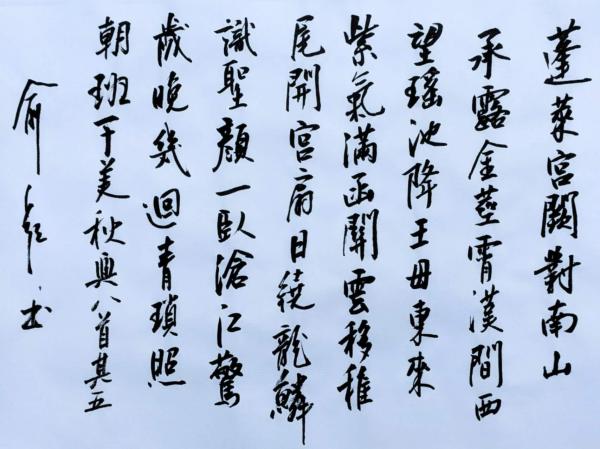 蓬萊宮闕對南山
承露金莖霄漢間西
望瑤池降王母東來
紫氣滿函關雲移雉
尾開宮扇日繞龍鱗
識聖顏一臥滄江驚
歲晚幾迴青瑣照
朝班子美秋興八首其五
俞書